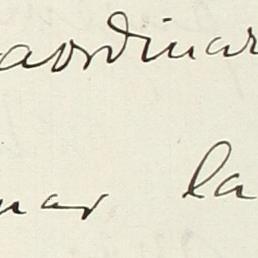 aordinar
nar la